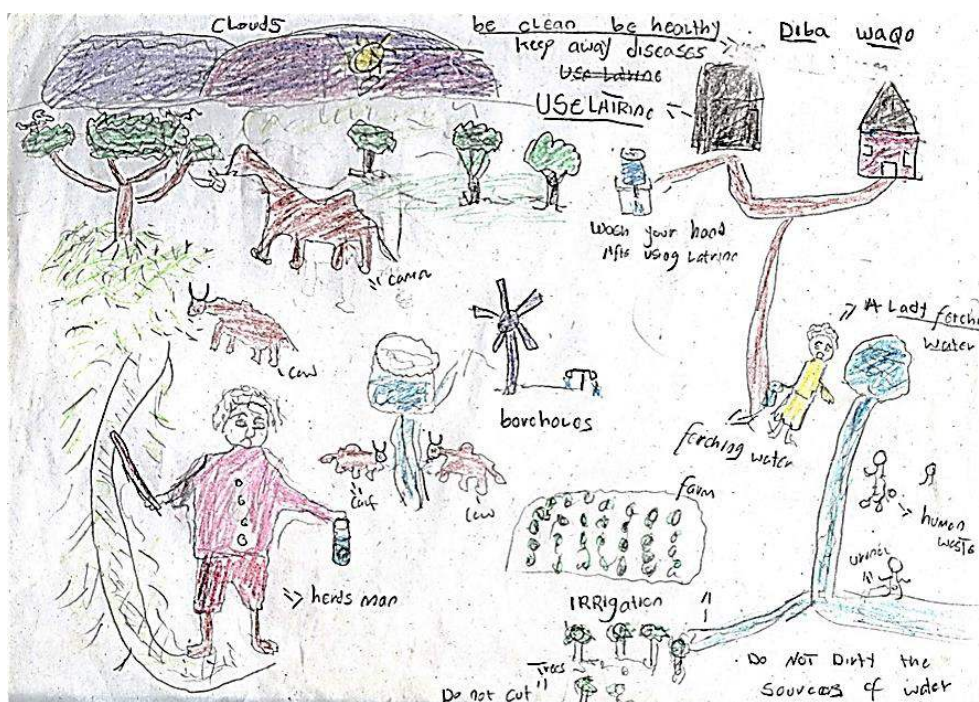 Clouds
be clean be healthy
keep away diseases
Use Latrine
USE LAIRINE
Diba waqo
Wash your hand
After using Latrine
camel
cow
boreholes
A Lady ferching
water
ferching water
calf
cow
farm
human
waste
urine
IRRigation
herds man
Trees
Do not cut
Do NOT Dirty the
sources of water